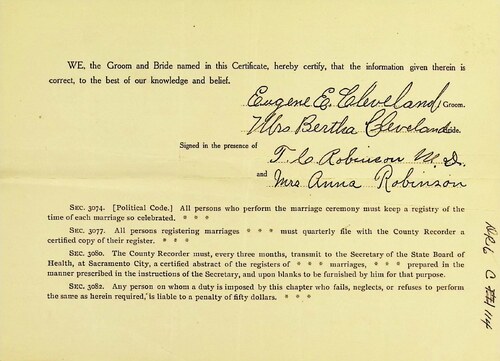 WE, the Groom and Bride named in this Certificate, hereby certify, that the information given therein is
correct, to the best of our knowledge and belief.
Eugene E. Cleveland, Groom.
Mrs Bertha Cleveland
Signed in the presence of
T. C. Robinson M.D.
and Mrs Anna Robinson
SEC. 3074. [Political Code.] All persons who perform the marriage ceremony must keep a registry of the
time of each marriage so celebrated. * * *
SEC. 3077. All persons registering marriages * * * must quarterly file with the County Recorder a
certified copy of their register. * * *
SEC. 3080. The County Recorder must, every three months, transmit to the Secretary of the State Board of
Health, at Sacramento City, a certified abstract of the registers of * * * marriages * * * prepared in the
manner prescribed in the instructions of the Secretary, and upon blanks to be furnished by him for that purpose.
SEC. 3082. Any person on whom a duty is imposed by this chapter who fails, neglects, or refuses to perform
the same as herein required, is liable to a penalty of fifty dollars. * * *